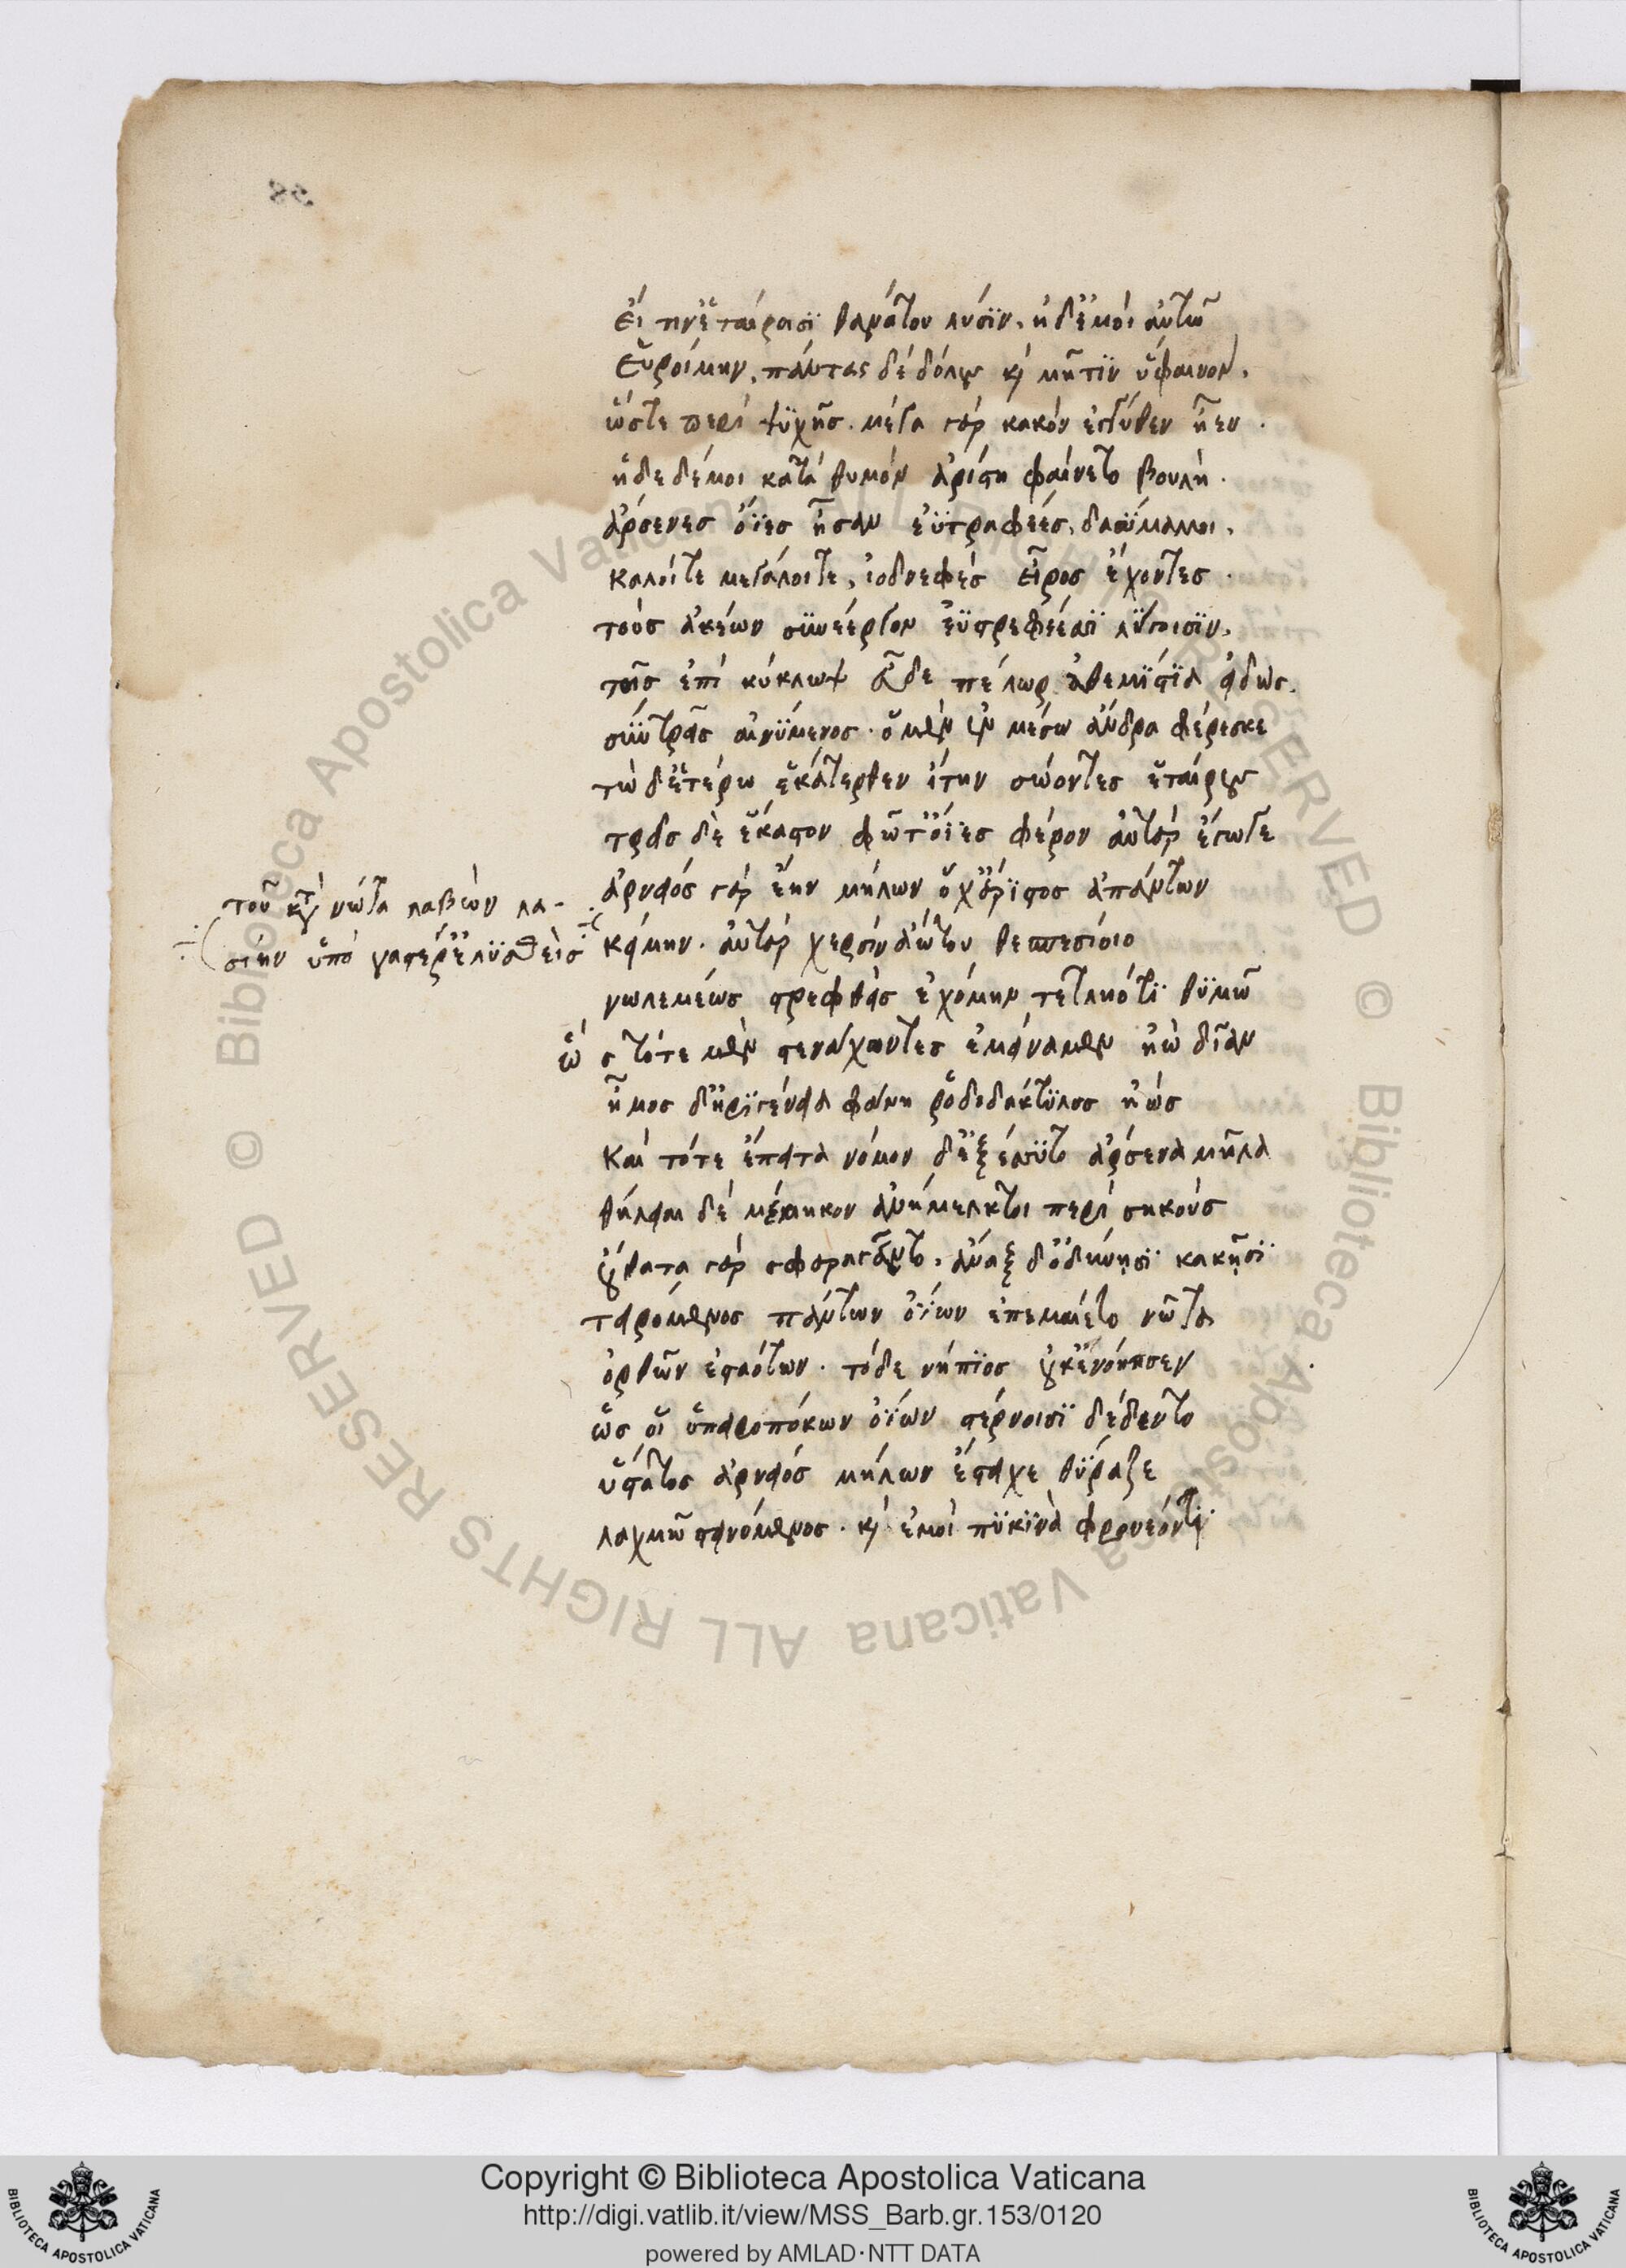 εἴ πῃν ἑταίροισϊ θανάτου λύσϊν, ἠδ' ἐμοὶ αὐτῶ
εὑροίμην, πάντας δὲ δόλους κỳ μῆτϊν ὕφαινον,
ὥστε περὶ ψϋχῆς. μέγα γὰρ κακὸν ἐγγύθεν ἦεν.
ἥδε δέ μοι κατὰ θυμὸν ἀρίστη φαίνετο βουλή.
ἄρσενες ὄϊες ἦσαν ἐϋτραφέες, δασΰμαλλοι,
καλοίτε μεγάλοιτε, ἰοδνεφὲς εἶρος ἔχοντες.
τοὺς ἀκέων σϋνέεργον ἐϋστρεφέεσσϊ λύγοισϊν,
τῆς ἐπὶ κύκλωψ εὗδε πέλωρ ἀθεμΐστϊα εἰδώς.
σΰντρεις αἰνΰμενος. ὁ μὲν ἐν μέσω ἄνδρα φέρεσκε
τὼ δ' ἑτέρω ἑκάτερθεν ἴτην σώοντες ἑταίρους
τρεῖς δὲ ἕκαστον φῶτ' ὄϊες φέρον αὐτὰρ ἔγωγε
ἀρνειός γὰρ ἔην μήλων ὄχ' ἄρϊστος ἁπάντων
τοῦ κατὰ νῶτα λαβὼν λα-
σίην ὑπὸ γαστέρ' ἐλϋσθεὶς
κείμην. αὐτὰρ χερσὶν ἀώτου θεσπεσίοιο
νωλεμέως στρεφθεὶς ἐχόμην τετληότϊ θϋμῶ
ὣς τότε μὲν στενάχοντες ἐμείναμεν ἠὼ δῖαν
ἦμος δ' ἠρϊγένεια φάνη ῥοδοδάκτϋλος ἠώς
καὶ τότε ἔπειτα νόμον δ' ἐξέσσϋτο ἄρσενα μῆλα
θήλειαι δὲ μέμηκον ἀνήμελκτοι περὶ σηκούς
οὔθατα γὰρ σφαραγεῦντο, ἄναξ δ' ὀδύνῃσϊ κακῇσϊ
τειρόμενος πάντων ὀΐων ἐπεμαίετο νῶτα
ὀρθῶν ἑσταότων. τόδε νήπϊος οὐκ ἐνόησεν
ὥς οἱ ὑπ' εἰροπόκων ὀΐων στέρνοισϊ δέδεντο
ὕστατος ἀρνειός μήλων ἔστειχε θΰραζε
λαχμῶ στεινόμενος. κỳ ἐμοὶ πϋκϊνὰ φρονέοντϊ
Copyright © Biblioteca Apostolica Vaticana
http://digi.vatlib.it/view/MSS_Barb.gr.153/0120
powered by AMLAD·NTT DATA